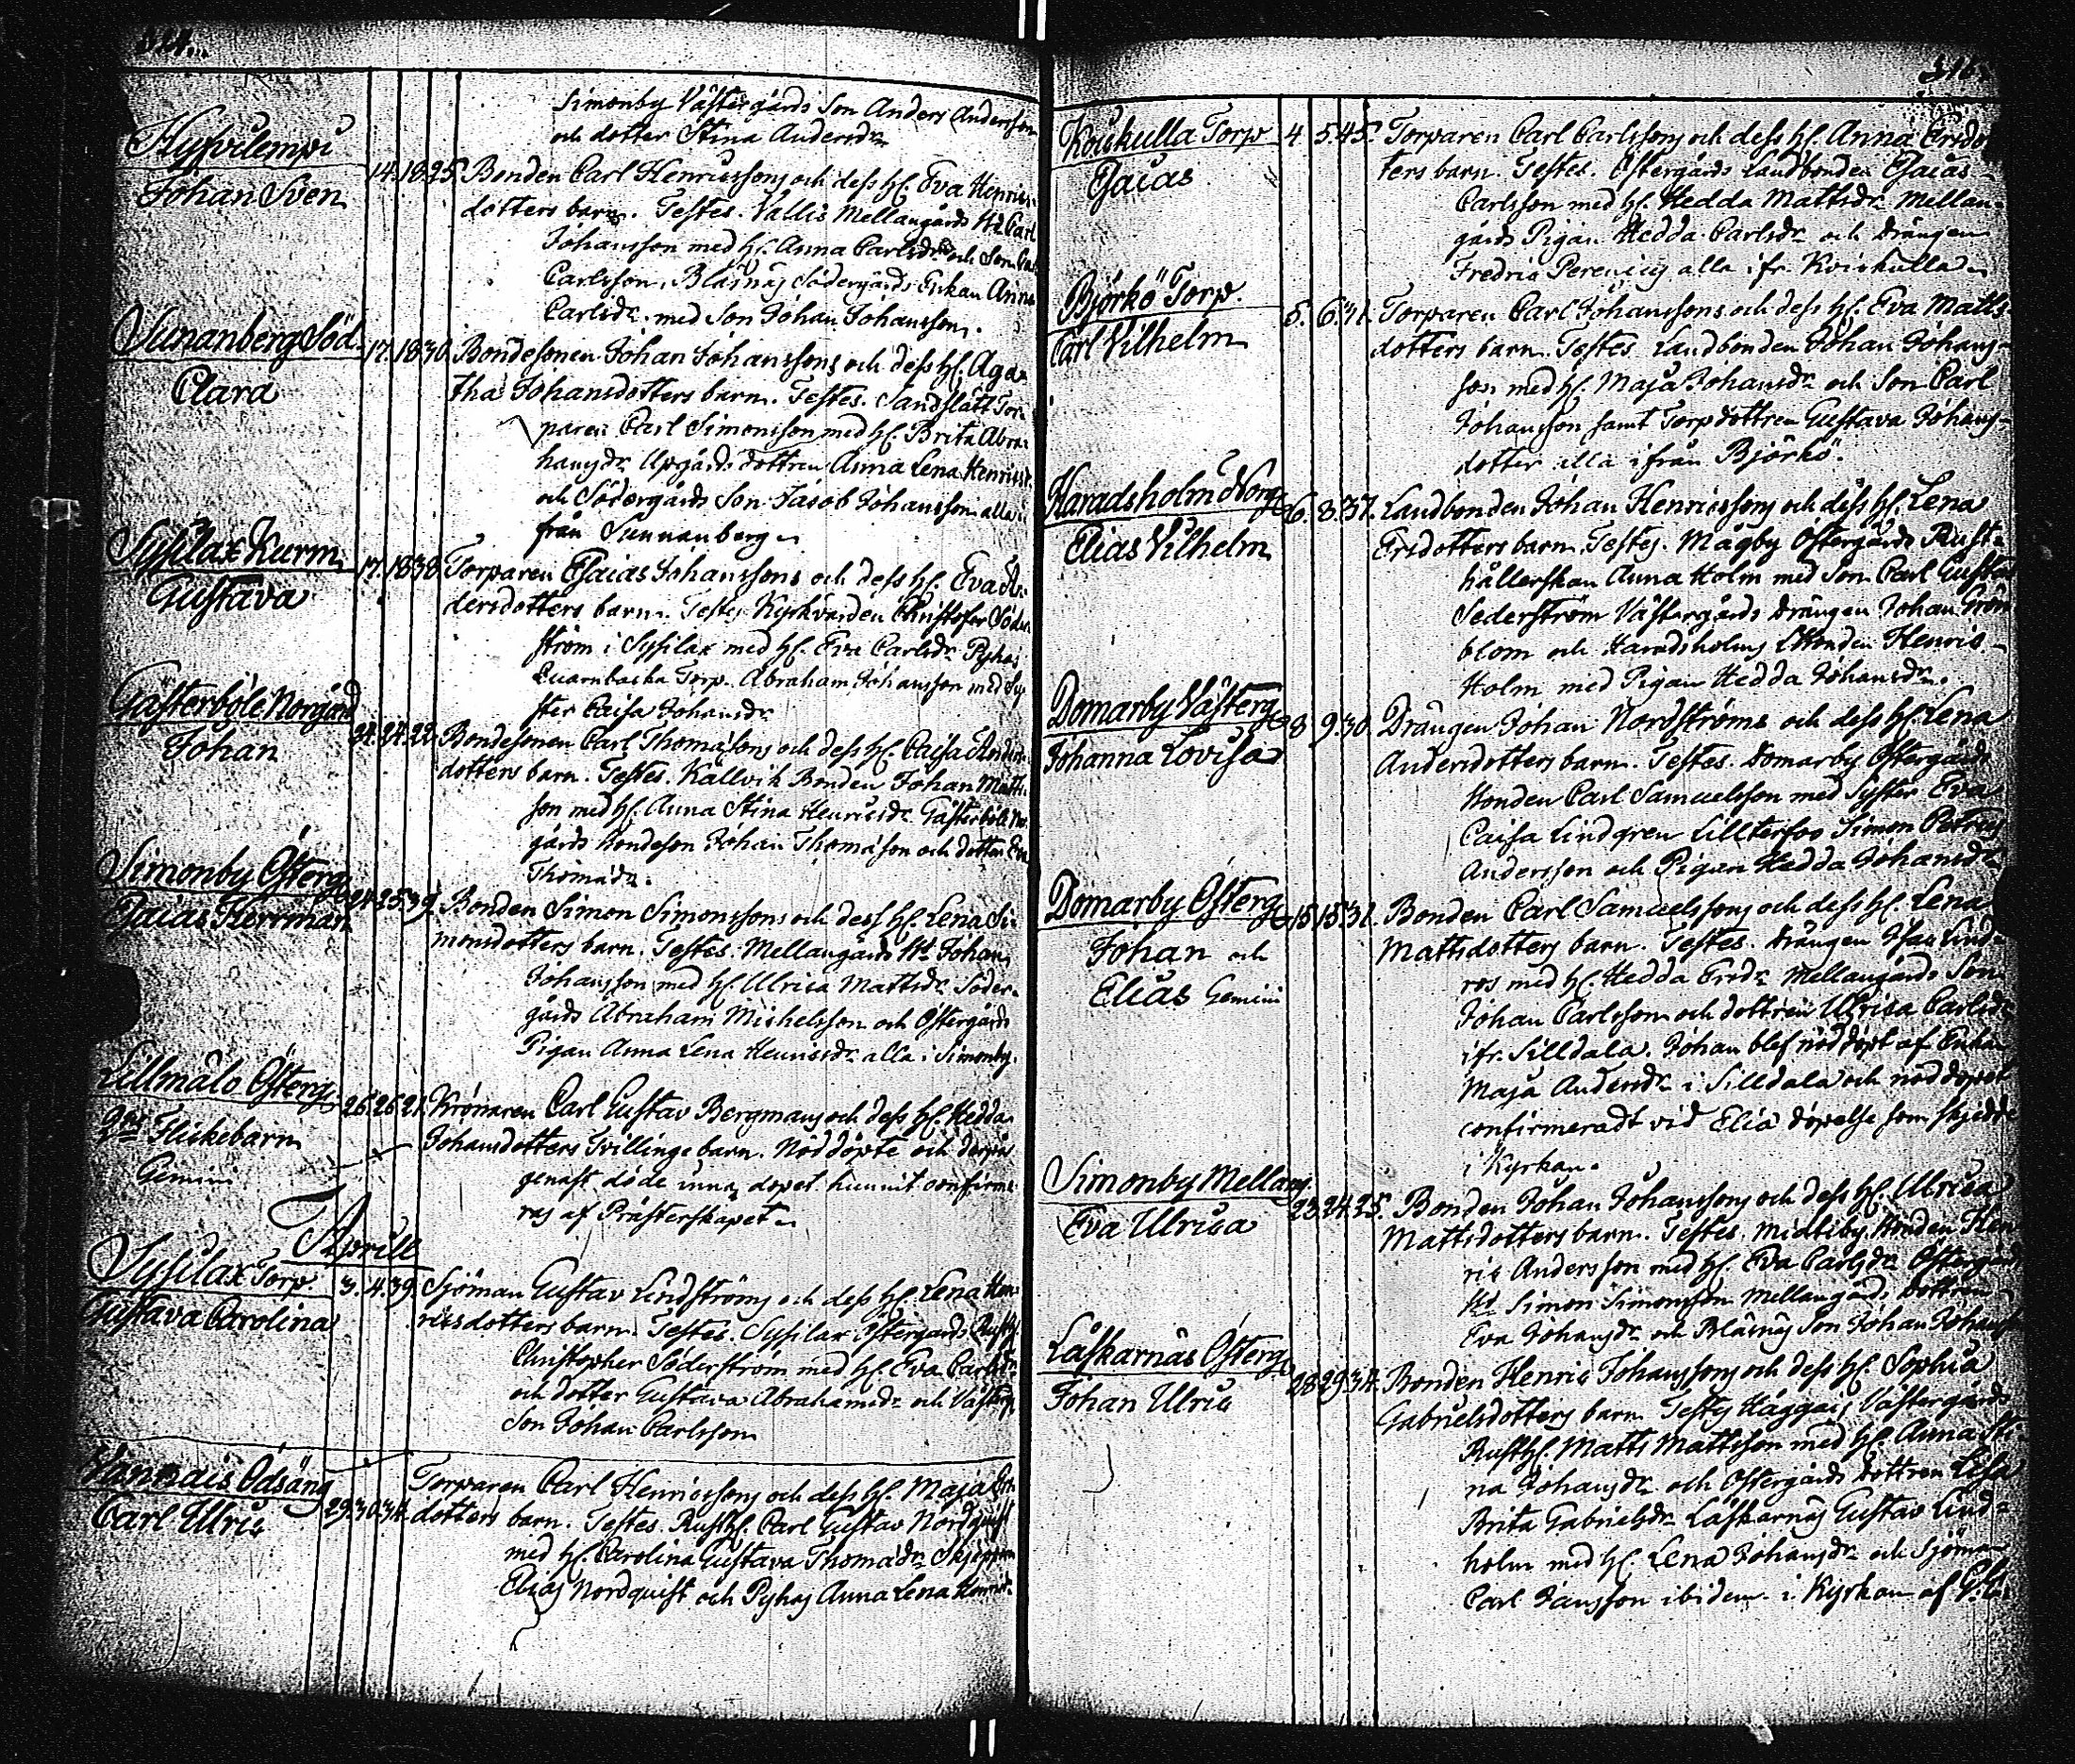 Simonby Västergårds Son Anders Andersson
och dotter Stina Andersdr
Hyvilempi
Johan Sven
14. 18. 25. Bonden Carl Henricssons och dess h. Eva Henrics
dotters barn. Testes. Vallis Mellangårds Hd Carl
Johansson med h. Anna Carlsdr och Son
Carlsson, Blåsnäs Södergårds Enkan Anna
Carlsdr. med Son Johan Johansson.
Sunanberg Söd.
Clara
17. 18. 30. Bondesonen Johan Johanssons och dess h. Aga-
tha Johansdotters barn. Testes. Sandslått Tor-
paren Carl Simonsson med h. Brita Abra-
hamsdr Upgårds dottren Anna Lena Henricsd.
och Södergårds Son Jacob Johansson alla i
från Sunnanberg
Sysilax Kurm
Gustava
17. 18. 38. Torparen Esaias Johanssons och dess h. Eva An-
dersdotters barn. Testes Kyrkvärden Christofer Söder
ström i Sysilax med h. Eva Carlsdr Pyhäs
Quarnbacka Torp. Abraham Johansson med Sy-
ster Caisa Johansdr
Gästerböle Norgård
Johan
24. 24. 22. Bondesonen Carl Thomassons och dess h. Caisa Anders
dotters barn. Testes. Kallvik Bonden Johan Matts
son med h. Anna Stina Henricsdr Gästerböle Nor
gårds Bondeson Johan Thomasson och dotter Eva
Thomadr.
Simonby Österg
Esaias Herrman
24. 25. 39. Bonden Simon Simonssons och dess h. Lena Si-
monsdotters barn. Testes. Mellangårds Hd Johan
Johansson med h. Ulrica Mattsdr Söder-
gårds Abraham Michelsson och Östergårds
Pigan Anna Lena Hemricsdr alla i Simonby.
Lillmälo Österg
2ne Flickebarn
Gemini
26. 26. 21. Krönaren Carl Gustav Bergmans och dess h. Hedda
Johansdotters Tvillinge barn. Nöddöpte och derpå
genast döde innan dopet hunnit confirme
ras af Prästerskapet
Aprill
Sysilax Torp.
Gustava Carolina
3. 4. 39. Sjöman Gustav Lindströms och dess h. Lena Hen-
ricsdotters barn. Testes. Sysilax Östergårds Rusth.
Christopher Söderström med h. Eva Carlsdr
och dotter Gustava Abrahamsdr och Västerg.
Son Johan Carlsson
Vannais Odsäng
Carl Ulric
29. 30. 34. Torparen Carl Henricssons och dess h. Maja
dotters barn. Testes. Rusth. Carl Gustav Nordquist
med h. Carolina Gustava Thomadr Skjeppan
Elias Nordquist och Pyhäs Anna Lena Henricsdr
Koukulla Torp
Esaias
4. 5. 45. Torparen Carl Carlssons och dess h. Anna Ersdot
ters barn. Testes. Östergårds Landbonden Esaias
Carlsson med h. Hedda Mattsdr Mellan-
gårds Pigan Hedda Carlsdr och Drängen
Fredric Perenius alla ifr. Kviskulla
Björkö Torp.
Carl Vilhelm
5. 6. 41. Torparen Carl Johanssons och dess h. Eva Matts-
dotters barn. Testes Landbonden Johan Johans-
son med h. Maja Johansdr och Son Carl
Johansson samt Torpdottren Gustava Johans-
dotter alla ifrån Björkö.
Haradsholm Norg
Elias Vilhelm
6. 8. 37. Landbonden Johan Henricssons och dess h. Lena
Ersdotters barn. Testes. Mågby Östergårds Rust-
hållerskan Anna Holm med Son Carl Gustav
Sederström Västergårds Drängen Johan Grön
blom och Haradsholms Bonden Henric
Holm med Pigan Hedda Johansdr.
Domarby Västerg
Johanna Lovisa
8 9. 30. Drängen Johan Nordströms och dess h. Lena
Andersdotters barn. Testes. Domarby Östergårds
Bonden Carl Samuelsson med Syster Eva
Caisa Lindgren Lillterfvo Simon Petrus
Andersson och Pigan Hedda Johansdr
Domarby Österg
Johan och
Elias Gemini
15 15. 31. Bonden Carl Samuelssons och dess h. Lena
Mattsdotters barn. Testes. Drängen Isac Lind-
ros med h. Hedda Ersdr Mellangårds Son
Johan Carlsson och dottren Ulrica Carlsdr
ifr. Silldala. Johan blef nöddöpt af Enkan
Maja Andersdr i Silldala och nöddopet
confirmeradt vid Eliæ döpelse som skjedde
i Kyrkan.
Simonby Mellang.
Eva Ulrica
23. 24. 25. Bonden Johan Johanssons och dess h. Ulrica
Mattsdotters barn. Testes. Midlby Bonden Hen
ric Andersson med h. Eva Carlsdr Östergårds
Hd Simon Simonsson Mellangårds Dottren
Eva Johansdr och Blåsnäs Son Johan Johanss
Låskarnäs Österg
Johan Ulric
28. 29. 34. Bonden Henric Johanssons och dess h. Sophia
Gabrielsdotters barn Testes Haggais Västergårds
Rusth. Matts Mattsson med h. Anna Sti-
na Johansdr och Östergårds Dottren Lisa
Brita Gabrielsdr Låskarnäs Gustav Lind-
holm med h. Lena Johansdr och Sjöman
Carl Jansson ibidem. i Kyrkan af